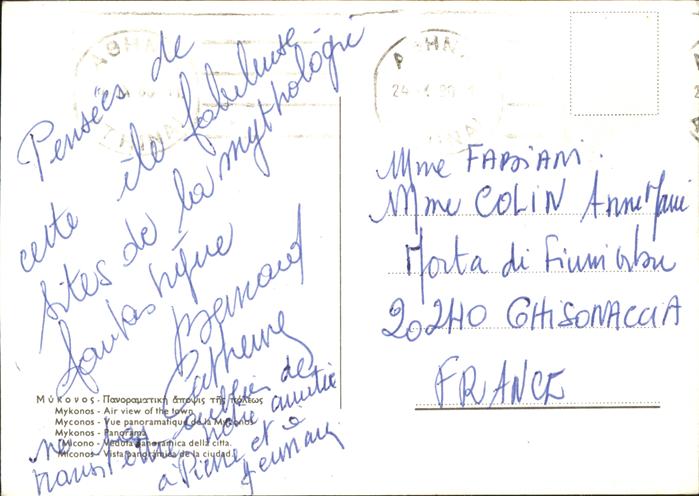 Pensées de
cette île fabuleuse
sites de la mythologie
fantastique
Bernard
Catherine
ne pas oublier de
transmettre notre amitié
à Pierre et à
Μύκονος - Πανοραματική ἄποψις τῆς πόλεως
Mykonos - Air view of the town
Myconos - Vue panoramatique de la Myconos
Mykonos - Panorama
Micono - Veduta panoramica della città.
Miconos - Vista panorámica de la ciudad.
ΑΘΗΝΑΙ
ΑΘΗΝΑΙ
Mme FABIANI.
Mme COLIN Anne Marie
Morta di Fiumorbu
20240 GHISONACCIA
FRANCE